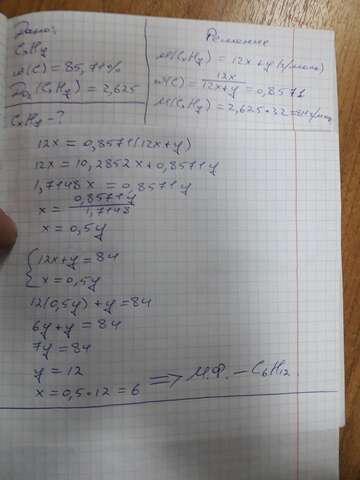 Дано:
CxHy
ω(C) = 85,71%
DO₂(CxHy) = 2,625
CxHy - ?
Решение
M(CxHy) = 12x + y (г/моль)
ω(C) = 12x / 12x+y = 0,8571
M(CxHy) = 2,625 · 32 = 84 г/моль
12x = 0,8571(12x+y)
12x = 10,2852x + 0,8571y
1,7148x = 0,8571y
x = 0,8571y / 1,7148
x = 0,5y
{ 12x + y = 84
x = 0,5y
12(0,5y) + y = 84
6y + y = 84
7y = 84
y = 12
x = 0,5 · 12 = 6 ⟹ М.Ф. – C₆H₁₂.